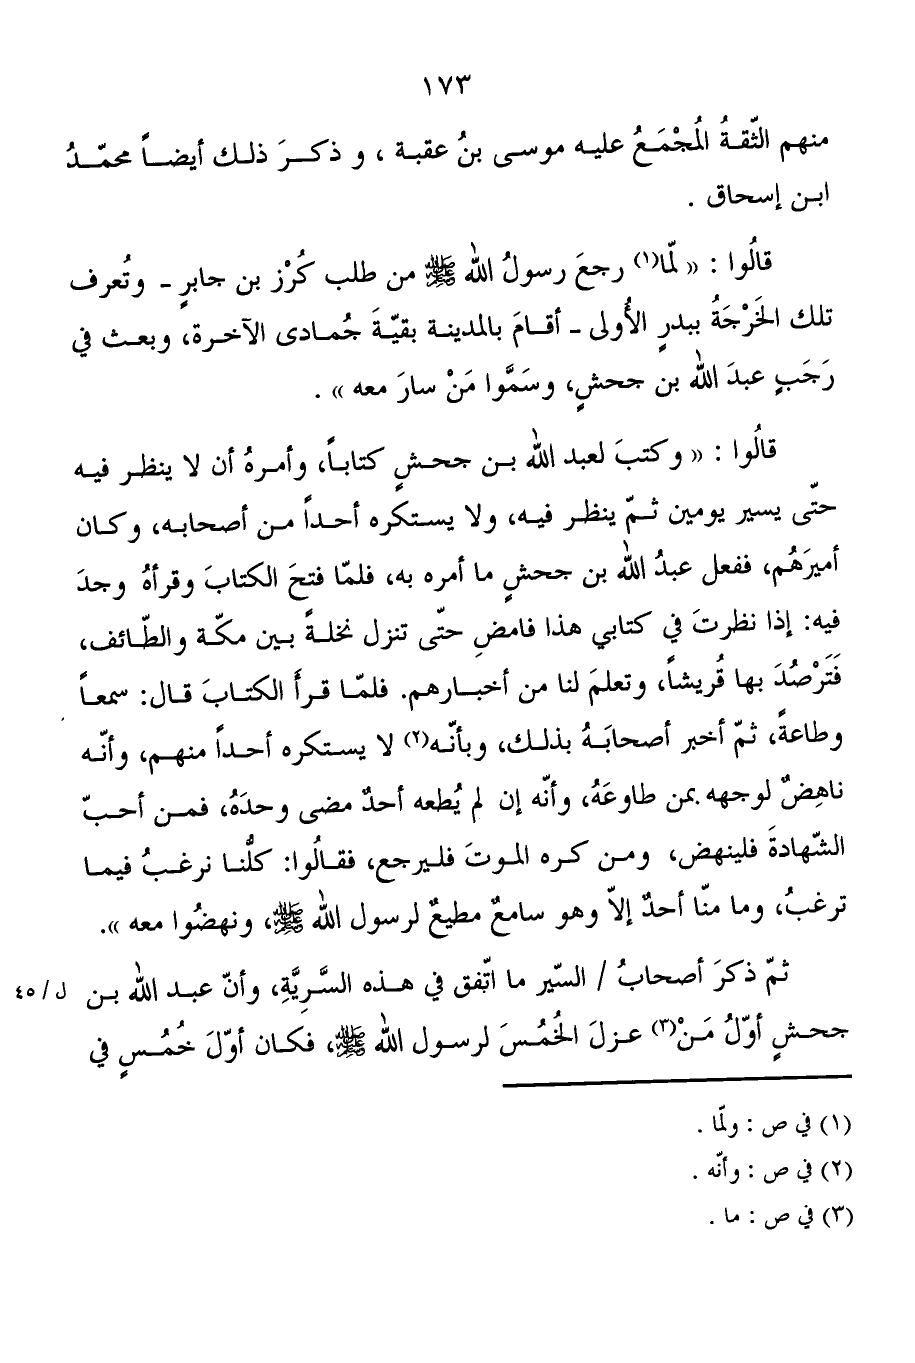 ١٧٣
منهم الثّقةُ المُجْمَعُ عليه موسى بنُ عقبة ، و ذكرَ ذلك أيضاً محمّدُ
ابن إسحاق .
قالُوا : « لمّا(١) رجعَ رسولُ اللّٰه ﷺ من طلب كُرْز بن جابرٍ - وتُعرف
تلك الخَرْجَةُ ببدرٍ الأُولى - أقامَ بالمدينة بقيّةَ جُمادى الآخرة، وبعث في
رَجَبٍ عبدَ اللّٰه بن جحشٍ، وسَمَّوا مَنْ سارَ معه » .
قالُوا : « وكتبَ لعبد اللّٰه بن جحشٍ كتاباً، وأمرهُ أن لا ينظر فيه
حتّى يسير يومين ثمّ ينظر فيه، ولا يستكره أحداً من أصحابه، وكان
أميرَهُم، ففعل عبدُ اللّٰه بن جحشٍ ما أمره به، فلمّا فتحَ الكتابَ وقرأهُ وجدَ
فيه: إذا نظرتَ في كتابي هذا فامضِ حتّى تنزل نخلةً بين مكّة والطّائف،
فَتَرْصُدَ بها قُريشاً، وتعلمَ لنا من أخبارهم. فلمّا قرأَ الكتابَ قال: سمعاً
وطاعةً، ثمّ أخبر أصحابَهُ بذلك، وبأنّه(٢) لا يستكره أحداً منهم، وأنّه
ناهِضٌ لوجهه بمن طاوعَهُ، وأنّه إن لم يُطعه أحدٌ مضى وحدَهُ، فمن أحبّ
الشّهادةَ فلينهض، ومن كره الموتَ فليرجع، فقالُوا: كلُّنا نرغبُ فيما
ترغبُ، وما منّا أحدٌ إلاّ وهو سامعٌ مطيعٌ لرسول اللّٰه ﷺ، ونهضُوا معه ».
ثمّ ذكرَ أصحابُ / السّير ما اتّفق في هذه السَّريَّةِ، وأنّ عبد اللّٰه بن ل/٤٥
جحشٍ أوّلُ مَنْ(٣) عزلَ الخُمُسَ لرسول اللّٰه ﷺ، فكان أوّلَ خُمُسٍ في
(١) في ص : ولمّا .
(٢) في ص : وأنّه .
(٣) في ص : ما .